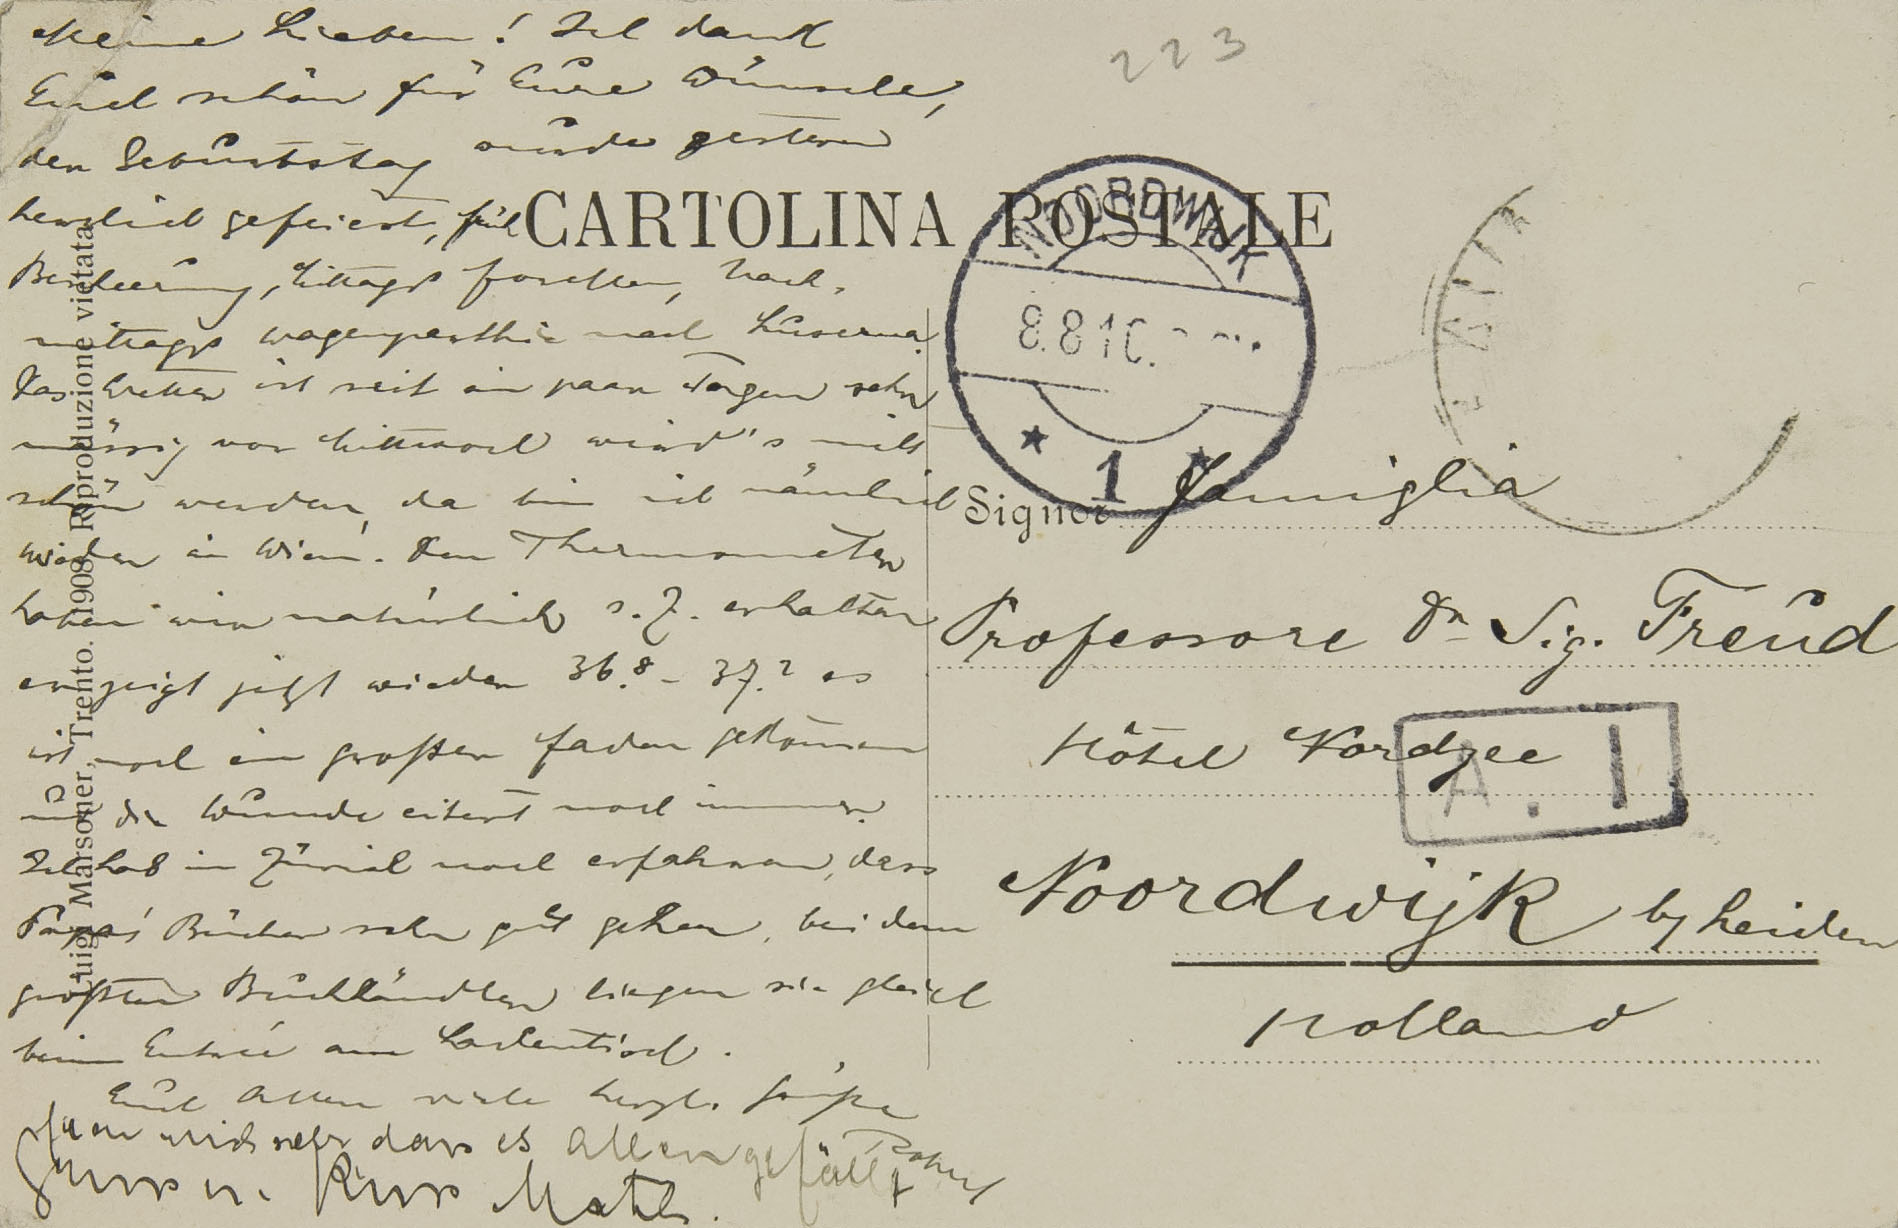 Meine Lieben! Ich dank
Euch schön für Eure Wünsche,
der Geburtstag wurde gestern
herzlich gefeiert, früh
Bescheerung, Mittags Forellen, Nach-
mittags Wagenparthie nach Luserna.
Das Wetter ist seit ein paar Tagen sehr
mässig von Mittwoch wird's
schön werden, da bin ich nämlich
wieder in Wien. Den Thermometer
haben wir natürlich s. Z. erhalten
er zeigt jetzt wieder 36.8 - 37.2 es
ist noch ein großer Faden gekommen
und die Wunde eitert noch immer.
Ich hab in Zürich noch erfahren, dass
Papas Bücher sehr gut gehen, bei dem
größten Buchhändler liegen sie gleich
beim Entrée am Ladentisch.
Euch Allen viele herzl. Grüße
Robert
Freu mich sehr dass es Allen gefällt
Gruss u. Kuss Math.
223
CARTOLINA POSTALE
NOORDWIJK
8.8.10.
1
Signor Famiglia
Professore Dr Sig. Freud
Hôtel Nordzee
A. 1
Noordwijk by Leiden
Holland
Luigi Marsoner, Trento. 1908. Riproduzione vietata